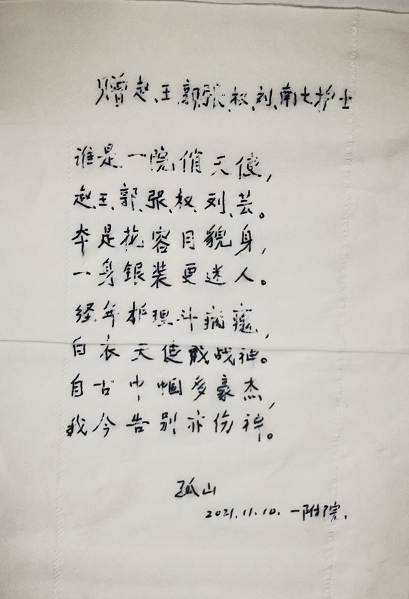 赠赵、王、郭、张、权、刘、南七护士
谁是一院俏天使,
赵、王、郭、张、权、刘、芸。
本是花容月貌身,
一身银装更迷人。
经年护理斗病魔,
白衣天使成战神。
自古巾帼多豪杰,
我今告别亦伤神。
孤山
2021.11.10.一附院.